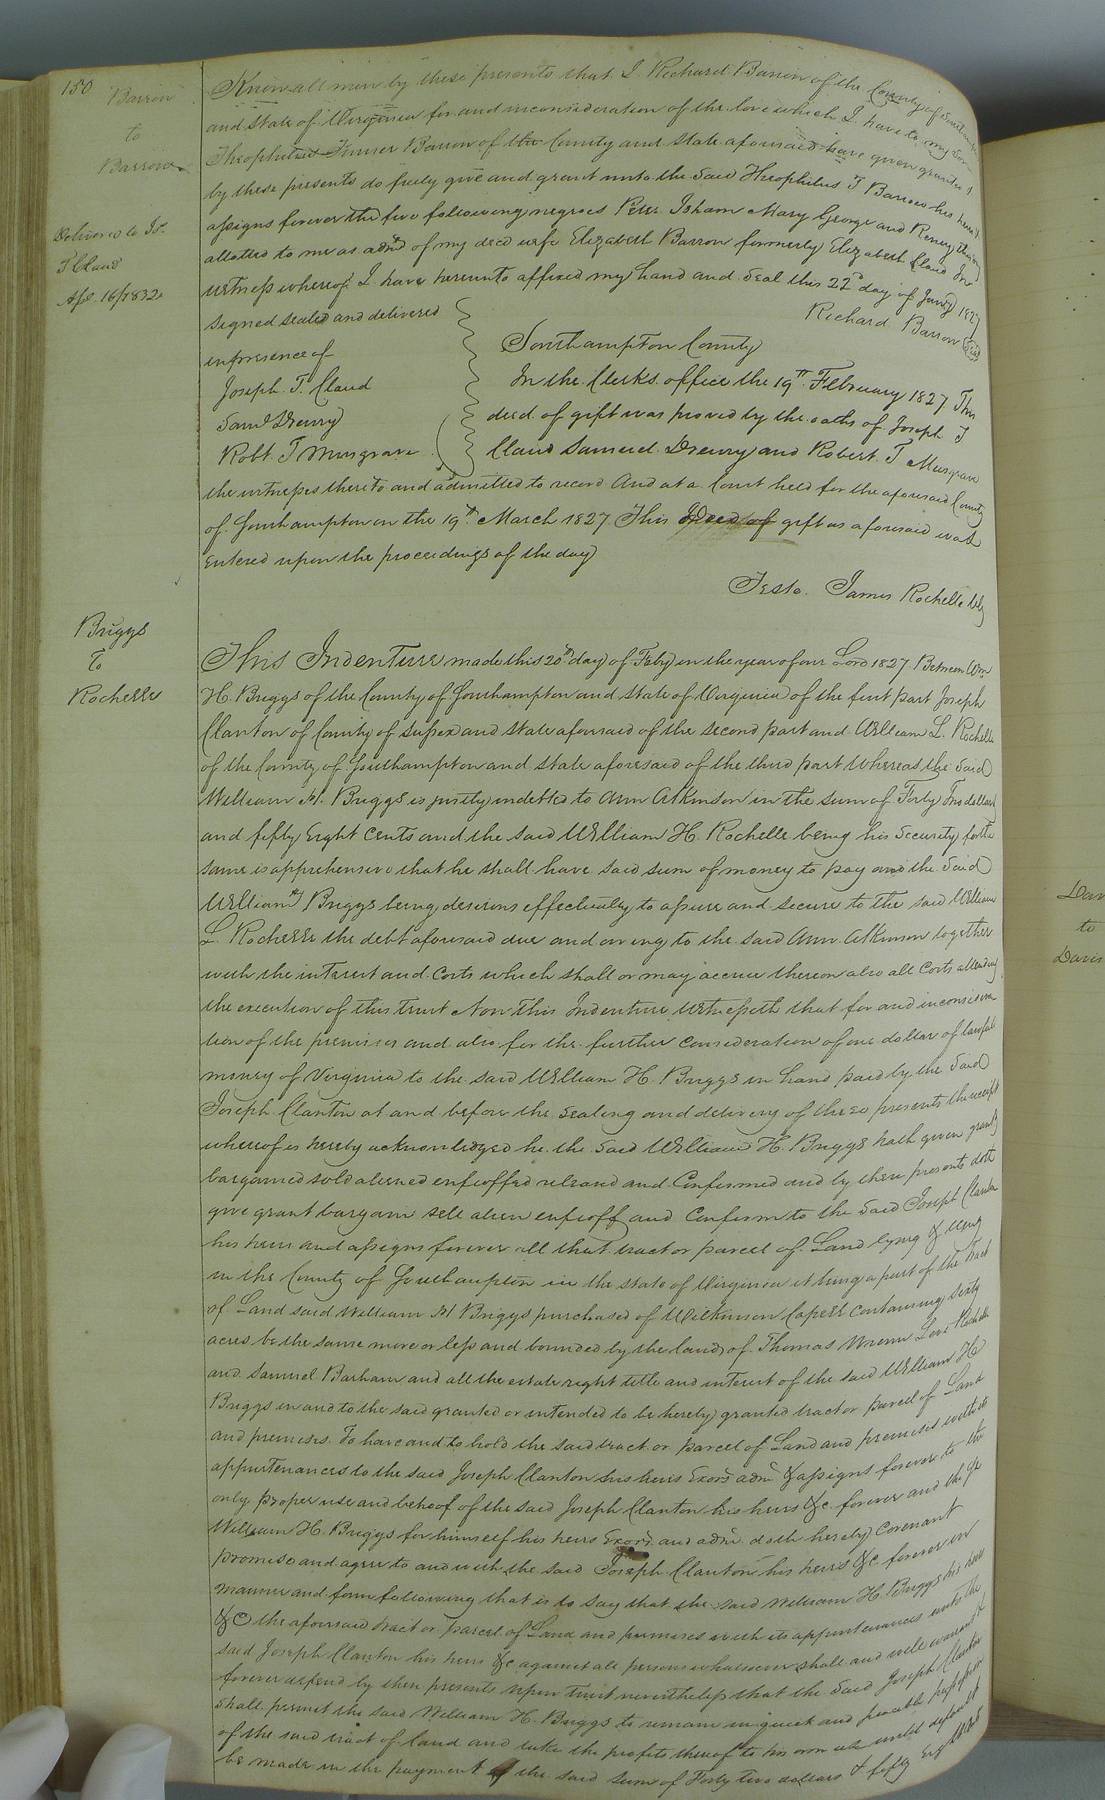 150
Barrow
to
Barrow
Delivered to Js.
T Claud
Apl. 16th 1832
Know all men by these presents that I Richard Barrow of the County of
and State of Virginia for and inconsideration of the love which I have to my Son
Theophilus Turner Barrow of the County and State aforesaid have given granted &
by these presents do freely give and grant unto the said Theophilus T Barrow his heirs &
assigns forever the five following negroes Peter Isham Mary George and Reney, they being
allotted to me as admr of my decd wife Elizabeth Barrow formerly Elizabeth Claud In
witness whereof I have hereunto affixed my hand and seal this 22d day of Jany 1827
Richard Barrow Seal
Signed sealed and delivered
in presence of
Joseph T. Claud
Saml Drewry
Robt. T Musgrave
Southampton County
In the Clerks office the 19th February 1827 This
deed of gift was proved by the oaths of Joseph T
Claud Samuel Drewry and Robert T Musgrave
the witnesses thereto and admitted to record And at a Court held for the aforesaid County
of Southampton on the 19th March 1827 This Deed of gift as aforesaid was
entered upon the proceedings of the day
Teste. James Rochelle Clk
Briggs
To
Rochelle
This Indenture made this 20th day of Feby in the year of our Lord 1827 Between Wm
H. Briggs of the County of Southampton and State of Virginia of the first part Joseph
Clanton of County of Sussex and State aforesaid of the second part and William L. Rochelle
of the County of Southampton and State aforesaid of the third part Whereas the Said
William H. Briggs is justly indetted to Ann Atkinson in the sum of Forty Two dollars
and fifty Eight Cents and the said William H. Rochelle being his Security for the
same is apprehensive that he shall have said sum of money to pay and the Said
William H Briggs being desirous effectually to assure and secure to the said William
L. Rochelle the debt aforesaid due and owing to the said Ann Atkinson together
with the interest and Costs which shall or may accrue thereon also all Costs attending
the execution of this trust Now This Indenture Witnesseth that for and inconsidera
tion of the premises and also for the further Consideration of one dollar of lawful
money of Virginia to the said William H. Briggs in hand paid by the Said
Joseph Clanton at and before the Sealing and delivery of these presents the receipt
whereof is hereby acknowledged he the Said William H. Briggs hath given granted
bargained sold aliened enfeoffed released and Confirmed and by these presents doth
give grant bargain sell alien enfeoff and Confirm to the Said Joseph Clanton
his heirs and assigns forever all that tract or parcel of Land lying & being
in the County of Southampton in the State of Virginia it being a part of the tract
of Land said William H Briggs purchased of Wilkinson Capell Containing sixty
acres be the same more or less and bounded by the lands of Thomas Levi Rochelle
and Samuel Barham and all the estate right title and interest of the said William H
Briggs in and to the said granted or intended to be hereby granted tract or parcel of Land
and premises. To have and to hold the said tract or parcel of Land and premises with its
appurtenances to the said Joseph Clanton his heirs Exors admr & assigns forever to the
only proper use and behoof of the said Joseph Clanton his heirs &c forever and the sd
William H. Briggs for himself his heirs Exors and admr doth hereby Covenant
promise and agree to and with the said Joseph Clanton his heirs &c forever in
manner and form following that is to say that the said William H. Briggs his heirs
&C the aforesaid tract or parcel of Land and premises with its appurtenances unto the
said Joseph Clanton his heirs &c against all persons whatsoever shall and will warrant &
forever defend by these presents upon trust nevertheless that the Said Joseph Clanton
shall permit the said William H. Briggs to remain in quiet and peacable possession
of the said tract of land and take the profits thereof to his own use until default
be made in the payment of the said sum of Forty two dollars & fifty Eight Cents
Davis
to
Davis